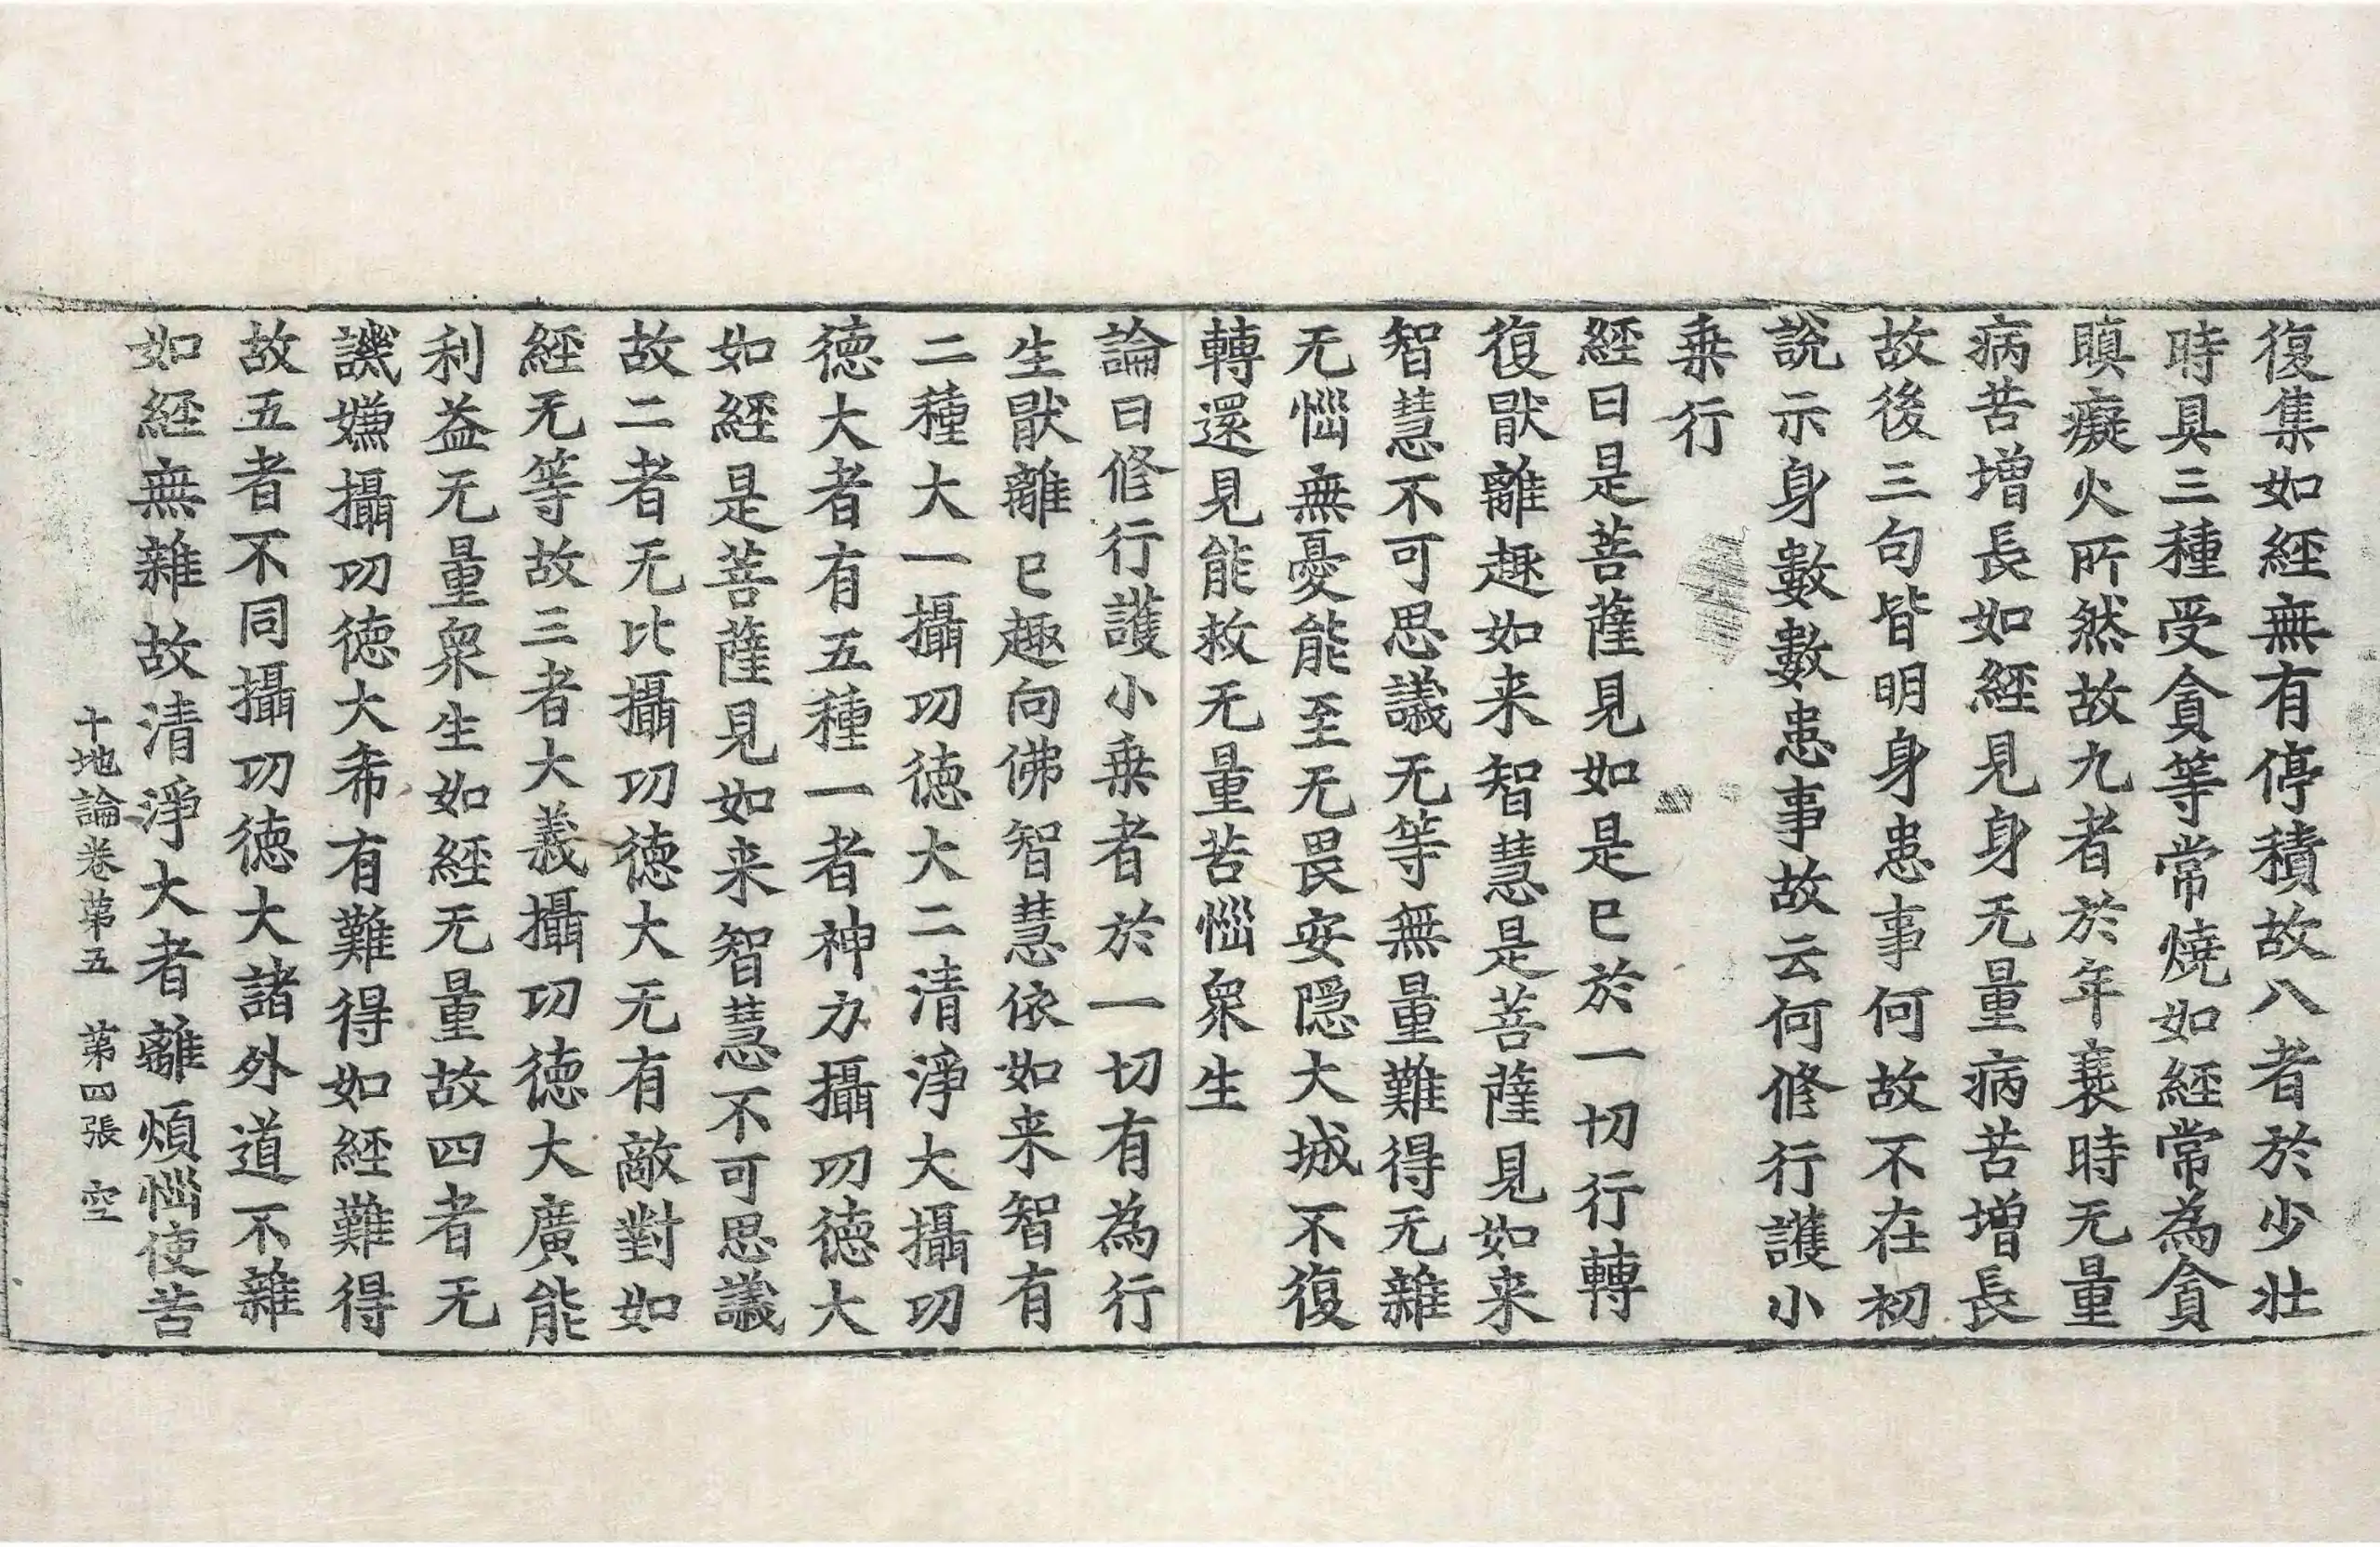 復集如經無有停積故八者於少壯
時具三種受貪等常燒如經常為貪
瞋癡火所然故九者於年衰時无量
病苦增長如經見身无量病苦增長
故後三句皆明身患事何故不在初
說示身數數患事故云何修行護小
乗行
經曰是菩薩見如是已於一切行轉
復猒離趣如来智慧是菩薩見如来
智慧不可思議无等無量難得无雜
无惱無憂能至无畏安隠大城不復
轉還見能救无量苦惱衆生
論曰修行護小乗者於一切有為行
生猒離已趣向佛智慧依如来智有
二種大一攝㓛徳大二清淨大攝㓛
徳大者有五種一者神力攝㓛徳大
如經是菩薩見如来智慧不可思議
故二者无比攝㓛徳大无有敵對如
經无等故三者大義攝㓛徳大廣能
利益无量衆生如經无量故四者无
譏嫌攝㓛徳大希有難得如經難得
故五者不同攝㓛徳大諸外道不雜
如經無雜故清淨大者離煩惱使苦
十地論卷第五 第四張 空